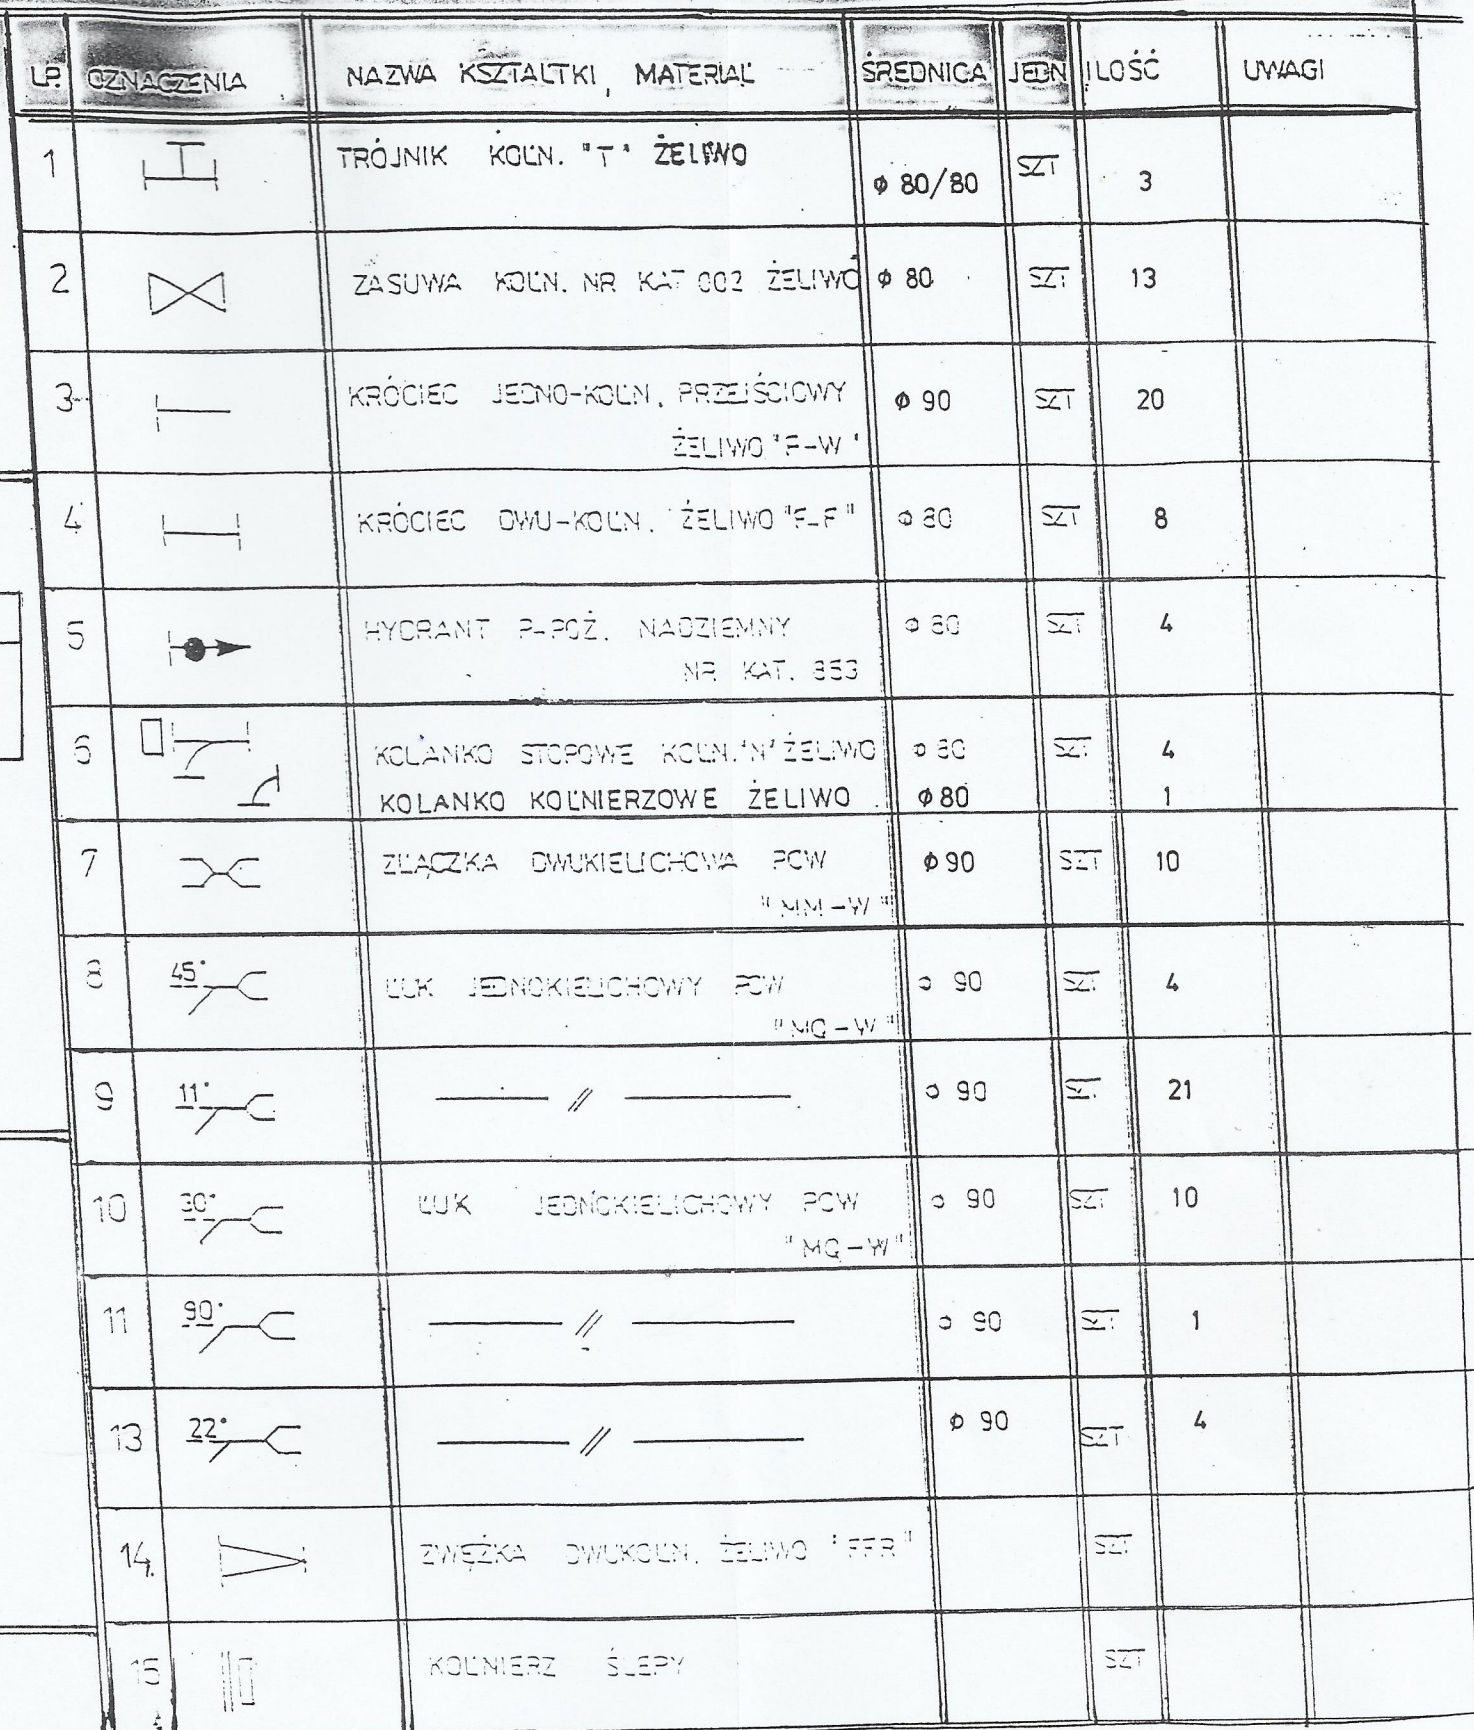 LP. OZNACZENIA NAZWA KSZTAŁTKI, MATERIAŁ ŚREDNICA JEDN ILOŚĆ UWAGI
1 TRÓJNIK KOŁN. "T" ŻELIWO ø 80/80 SZT 3
2 ZASUWA KOŁN. NR KAT 002 ŻELIWO ø 80 SZT 13
3 KRÓCIEC JEDNO-KOŁN. PRZEJŚCIOWY ø 90 SZT 20
ŻELIWO "F-W"
4 KRÓCIEC DWU-KOŁN. ŻELIWO "F-F" ø 80 SZT 8
5 HYDRANT P-POŻ. NADZIEMNY ø 80 SZT 4
NR KAT. 853
6 KOLANKO STOPOWE KOŁN. "N" ŻELIWO ø 80 SZT 4
KOLANKO KOŁNIERZOWE ŻELIWO ø 80 1
7 ZŁĄCZKA DWUKIELICHOWA PCW ø 90 SZT 10
"MM-W"
8 45° ŁUK JEDNOKIELICHOWY PCW ø 90 SZT 4
"MQ-W"
9 11° // ø 90 SZT 21
10 30° ŁUK JEDNOKIELICHOWY PCW ø 90 SZT 10
"MQ-W"
11 90° // ø 90 SZT 1
13 22° // ø 90 SZT 4
14. ZWĘŻKA DWUKOŁN. ŻELIWO "FFR" SZT
15 KOŁNIERZ ŚLEPY SZT